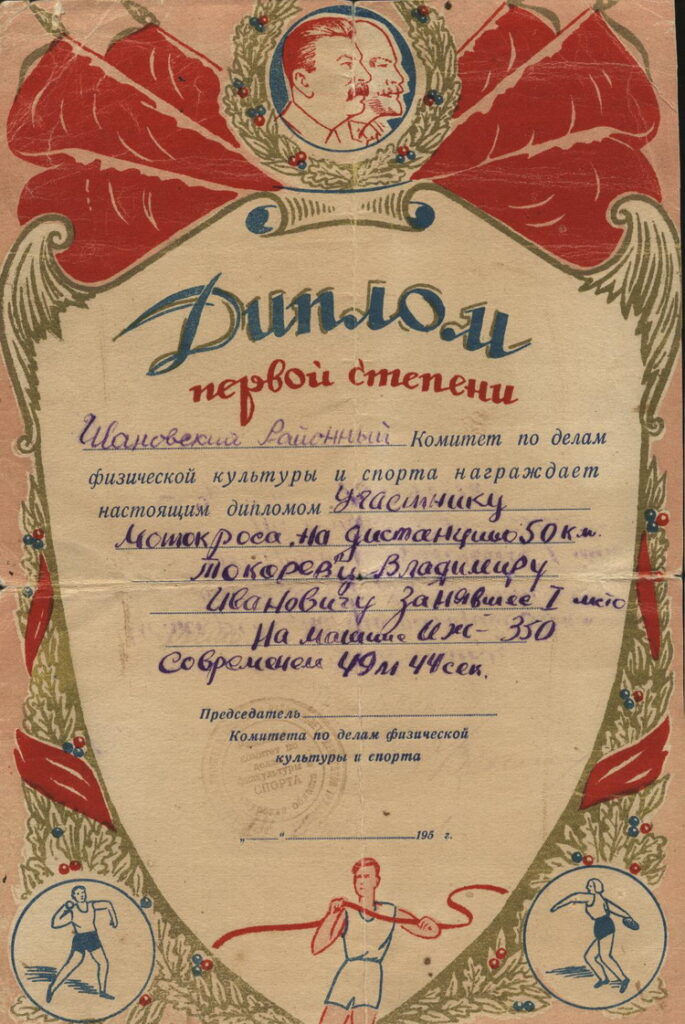 Диплом
первой степени
Районный Комитет по делам
физической культуры и спорта награждает
настоящим дипломом Участнику
Мотокроса на дистанцию 50 км.
Токореву Владимиру
Ивановичу занявшее I место
На машине ИЖ-350
Современем 49м 44сек.
Председатель
Комитета по делам физической
культуры и спорта
„ “ 195 г.
комитет по
делам
физкультуры
СПОРТА